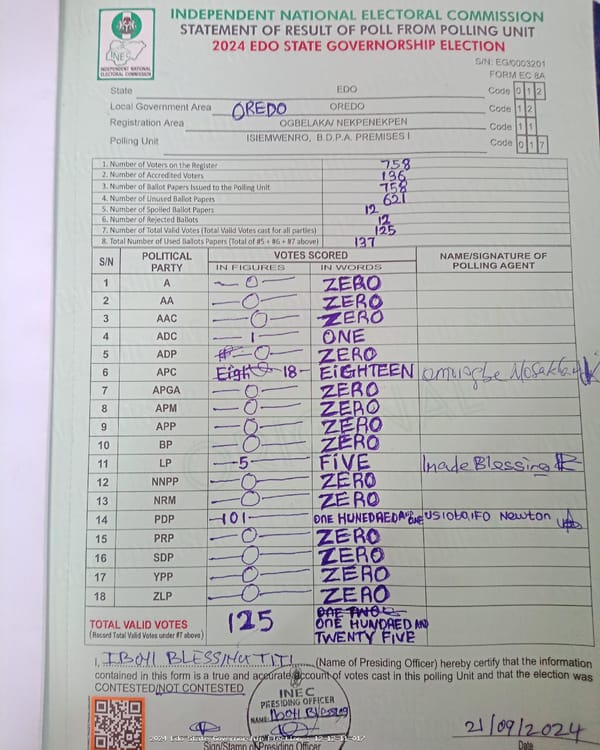 INDEPENDENT NATIONAL ELECTORAL COMMISSION
STATEMENT OF RESULT OF POLL FROM POLLING UNIT
2024 EDO STATE GOVERNORSHIP ELECTION
INEC
INDEPENDENT NATIONAL ELECTORAL COMMISSION
S/N: EG/0003201
FORM EC 8A
State EDO Code 0 1 2
Local Government Area OREDO OREDO Code 1 2
Registration Area OGBELAKA/ NEKPENEKPEN Code 1 1
Polling Unit ISIEMWENRO, B.D.P.A. PREMISES I Code 0 1 7
1. Number of Voters on the Register 758
2. Number of Accredited Voters 136
3. Number of Ballot Papers Issued to the Polling Unit 758
4. Number of Unused Ballot Papers 621
5. Number of Spoiled Ballot Papers 12
6. Number of Rejected Ballots 12
7. Number of Total Valid Votes (Total Valid Votes cast for all parties) 125
8. Total Number of Used Ballots Papers (Total of #5 + #6 + #7 above) 137
S/N POLITICAL PARTY VOTES SCORED NAME/SIGNATURE OF POLLING AGENT
IN FIGURES IN WORDS
1 A 0 ZERO
2 AA 0 ZERO
3 AAC 0 ZERO
4 ADC 1 ONE
5 ADP 0 ZERO
6 APC Eight 18 EIGHTEEN
7 APGA 0 ZERO
8 APM 0 ZERO
9 APP 0 ZERO
10 BP 0 ZERO
11 LP 5 FIVE Inade Blessing
12 NNPP 0 ZERO
13 NRM 0 ZERO
14 PDP 101 ONE HUNEDRED AND ONE Newton
15 PRP 0 ZERO
16 SDP 0 ZERO
17 YPP 0 ZERO
18 ZLP 0 ZERO
TOTAL VALID VOTES 125 ONE TWO
(Record Total Valid Votes under #7 above) ONE HUNDRED AND
TWENTY FIVE
I, IBOHI BLESSING TITI (Name of Presiding Officer) hereby certify that the information
contained in this form is a true and accurate account of votes cast in this polling Unit and that the election was
CONTESTED/NOT CONTESTED
INEC
PRESIDING OFFICER
NAME: Ibohi Blessing
21/09/2024
Sign/Stamp of Presiding Officer Date